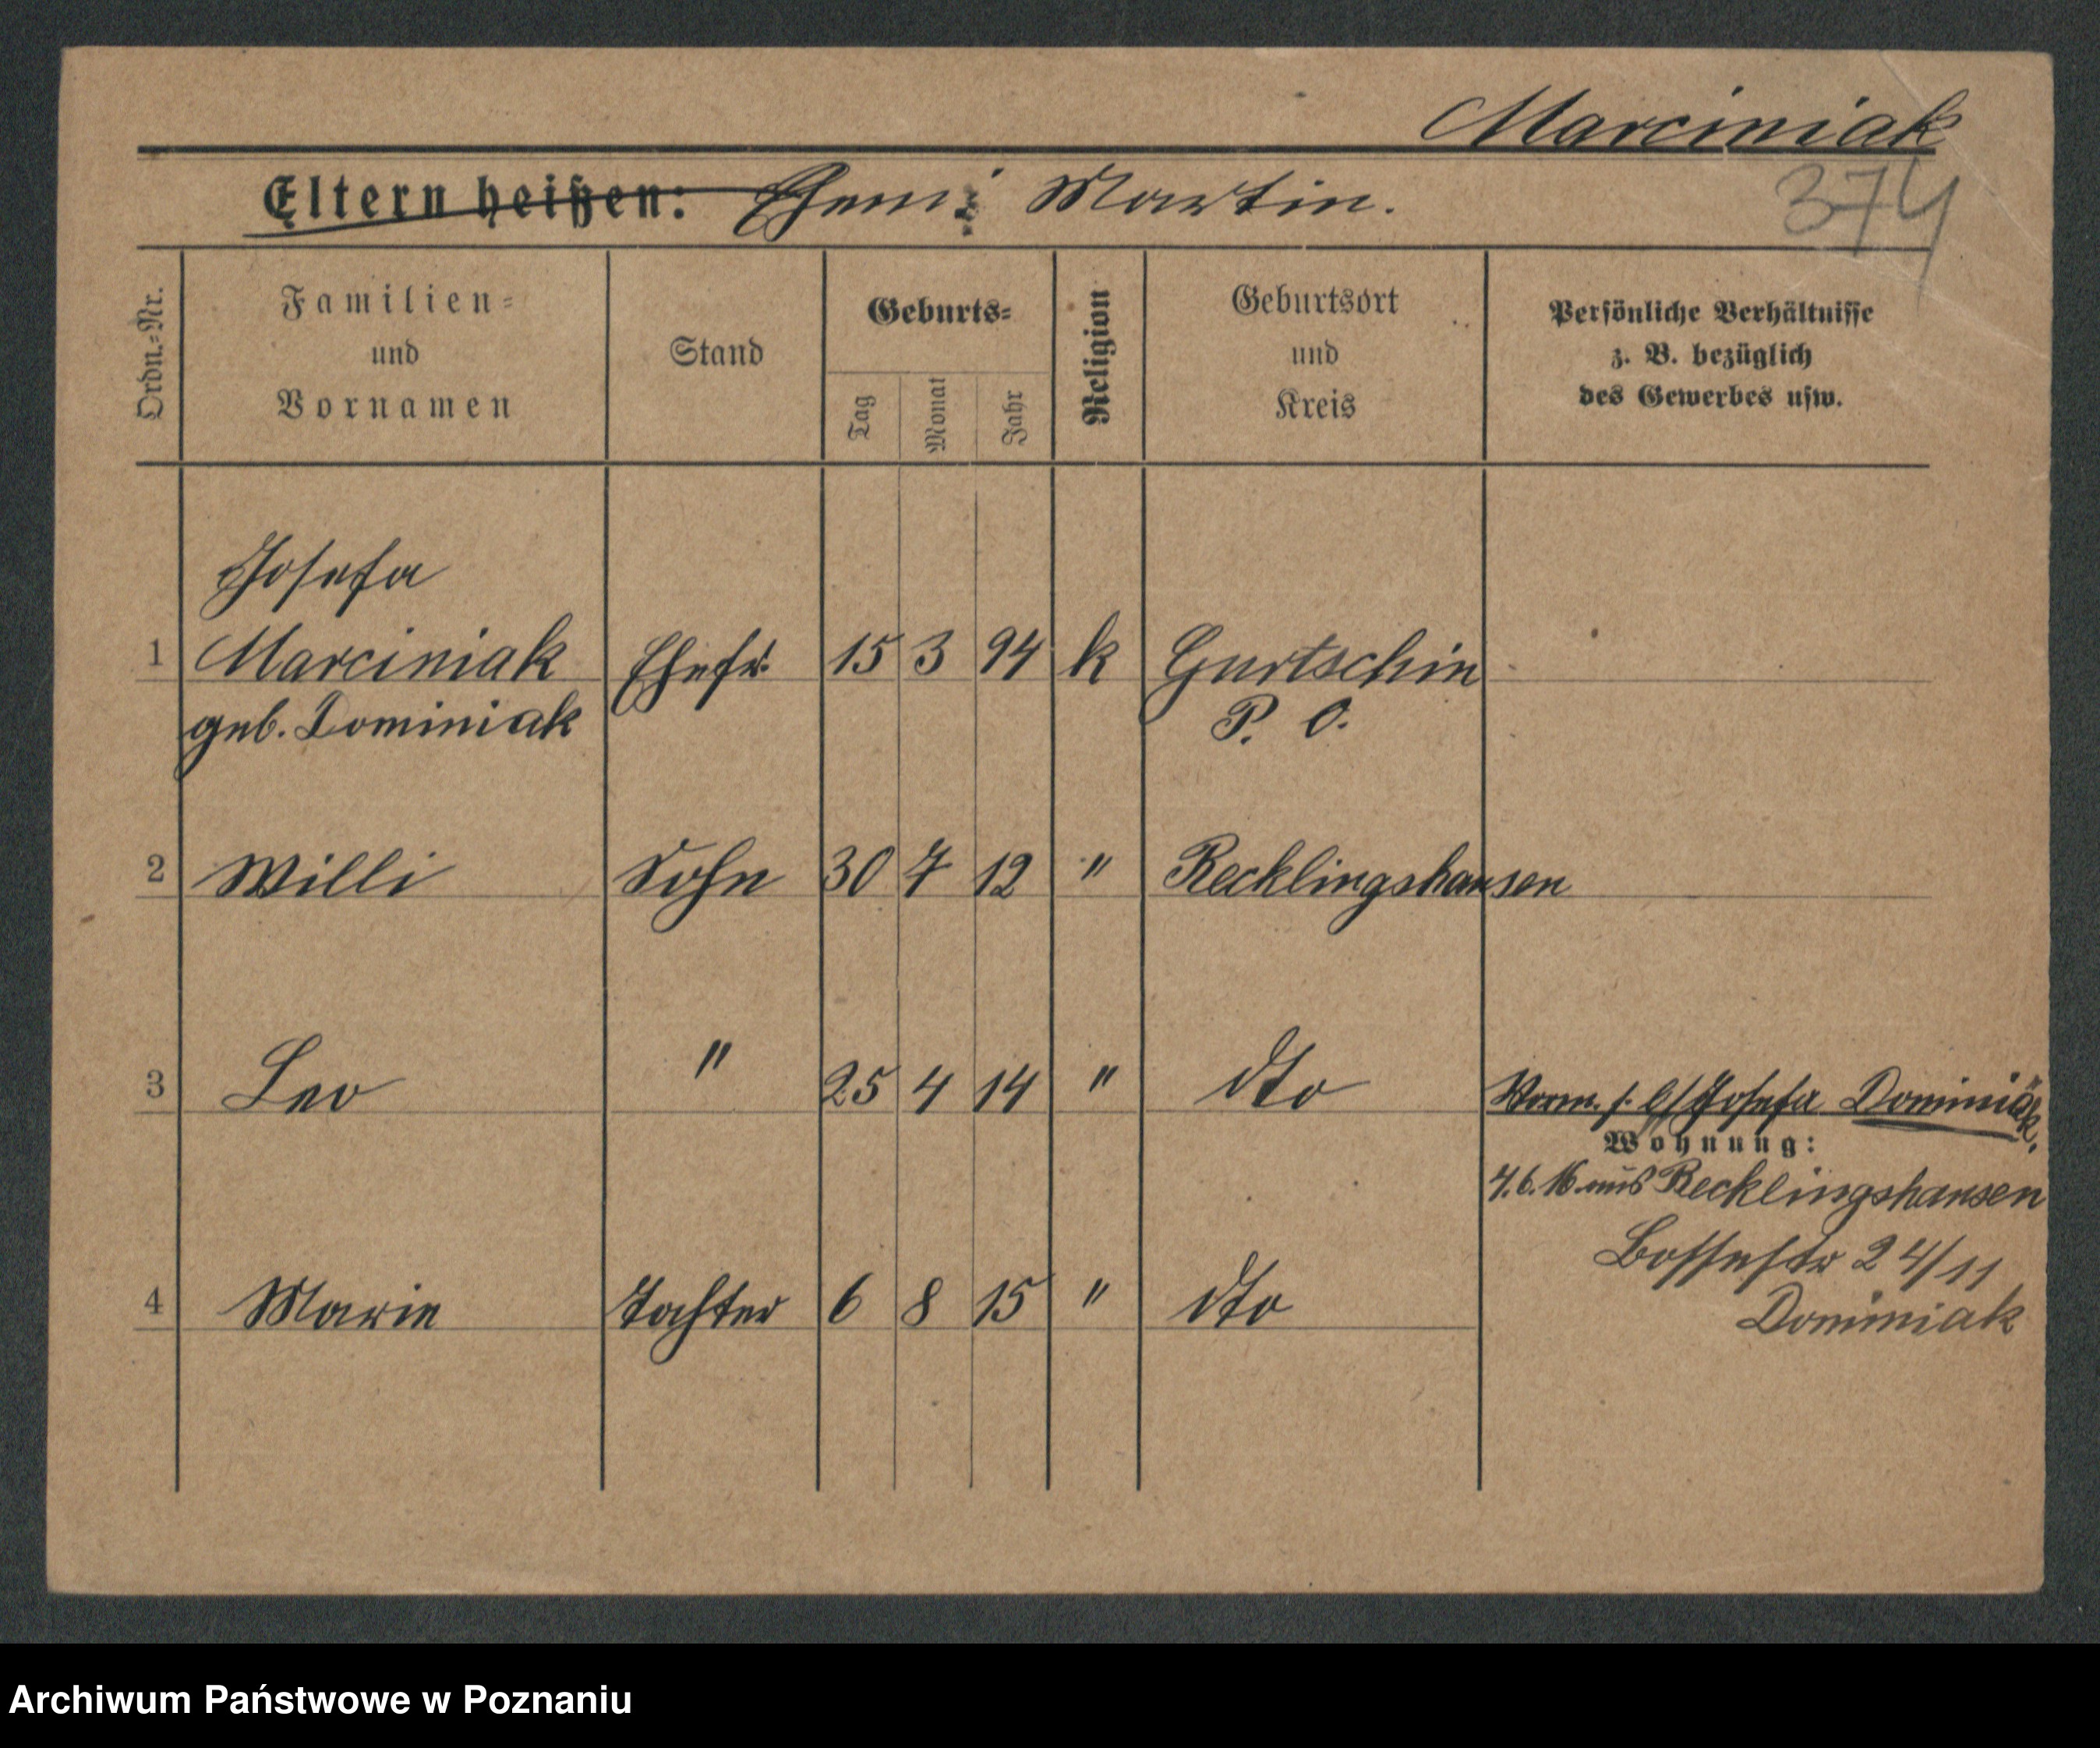 Marciniak
374
Eltern heißen: Ehem: Martin.
Ordn.=Nr.
Familien=
und
Vornamen
Stand
Geburts=
Tag
Monat
Jahr
Religion
Geburtsort
und
Kreis
Persönliche Verhältnisse
z. B. bezüglich
des Gewerbes usw.
Josefa
1 Marciniak Ehefr. 15 3 94 k Gurtschin
geb. Dominiak P. O.
2 Willi Sohn 30 7 12 " Recklingshausen
3 Leo " 25 4 14 " dto Josefa Dominiak.
Wohnung:
4.6.16 aus Recklingshausen
Bossestr 24/11
Dominiak
4 Marie Tochter 6 8 15 " dto
Archiwum Państwowe w Poznaniu